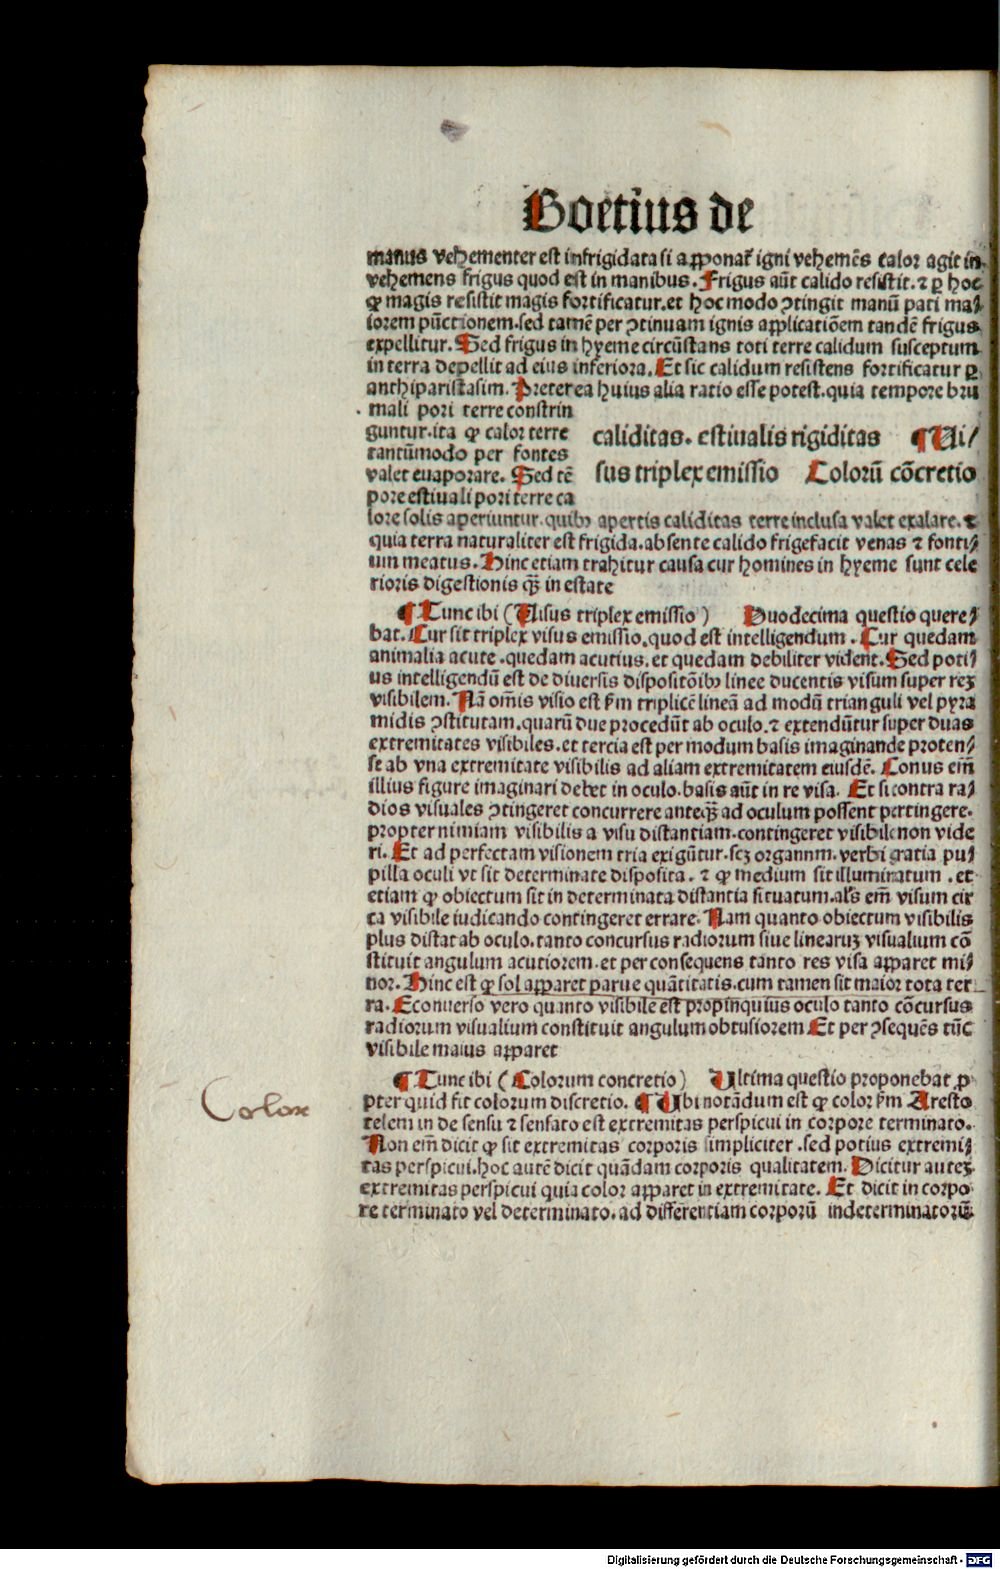 Boetius de
manus vehementer est infrigidata si apponat᷑ igni vehemēs calor agit in
vehemens frigus quod est in manibus. Frigus aūt calido resistit. ⁊ ꝑ hoc
ꝙ magis resistit magis fortificatur. et hoc modo ꝯtingit manū pati ma⸗
iorem pūctionem. sed tamē per ꝯtinuam ignis applicatiōem tandē frigus
expellitur. Sed frigus in hyeme circūstans toti terre calidum susceptum
in terra depellit ad eius inferiora. Et sic calidum resistens fortificatur ꝑ
anthiparistasim. Preterea huius alia ratio esse potest. quia tempore bru
mali pori terre constrin
guntur. ita ꝙ calor terre
tantūmodo per fontes
valet euaporare. Sed tē
pore estiuali pori terre ca
caliditas. estiualis rigiditas ¶ Ui⸗
sus triplex emissio Colorū cōcretio
lore solis aperiuntur. quibꝫ apertis caliditas terre inclusa valet exalare. ⁊
quia terra naturaliter est frigida. absente calido frigefacit venas ⁊ fonti⸗
um meatus. Hinc etiam trahitur causa cur homines in hyeme sunt cele
rioris digestionis qꝫ̄ in estate
¶ Tunc ibi (Uisus triplex emissio) Duodecima questio quere⸗
bat. Cur sit triplex visus emissio. quod est intelligendum. Cur quedam
animalia acute. quedam acutius. et quedam debiliter vident. Sed poti⸗
us intelligendū est de diuersis dispositōibꝫ linee ducentis visum super reꝫ
visibilem. Nā om̄is visio est ẜm triplicē lineā ad modū trianguli vel pyra
midis ꝯstitutam. quarū due procedūt ab oculo. ⁊ extendūtur super duas
extremitates visibiles. et tercia est per modum basis imaginande proten⸗
se ab vna extremitate visibilis ad aliam extremitatem eiusdē. Conus em̄
illius figure imaginari debet in oculo. basis aūt in re visa. Et si contra ra⸗
dios visuales ꝯtingeret concurrere anteqꝫ̄ ad oculum possent pertingere.
propter nimiam visibilis a visu distantiam. contingeret visibile non vide
ri. Et ad perfectam visionem tria exigūtur. scꝫ organnm. verbi gratia pu⸗
pilla oculi vt sit determinate disposita. ⁊ ꝙ medium sit illuminatum. et
etiam ꝙ obiectum sit in determinata distantia situatum. als̄ em̄ visum cir
ca visibile iudicando contingeret errare. Nam quanto obiectum visibilis
plus distat ab oculo. tanto concursus radiorum siue linearuꝫ visualium cō
stituit angulum acutiorem. et per consequens tanto res visa apparet mi⸗
nor. Hinc est ꝙ sol apparet parue quātitatis. cum tamen sit maior tota ter
ra. Econuerso vero quanto visibile est propinquius oculo tanto cōcursus
radiorum visualium constituit angulum obtusiorem Et per ꝯsequēs tūc
visibile maius apparet
¶ Tunc ibi (Colorum concretio) Ultima questio proponebat ꝓ
pter quid fit colorum discretio. ¶ Ubi notādum est ꝙ color ẜm Aresto
telem in de sensu ⁊ sensato est extremitas perspicui in corpore terminato.
Non em̄ dicit ꝙ sit extremitas corporis simpliciter. sed potius extremi⸗
tas perspicui. hoc autē dicit quādam corporis qualitatem. Dicitur auteꝫ
extremitas perspicui quia color apparet in extremitate. Et dicit in corpo
re terminato vel determinato. ad differentiam corporū indeterminatorū.
Color
Digitalisierung gefördert durch die Deutsche Forschungsgemeinschaft - DFG